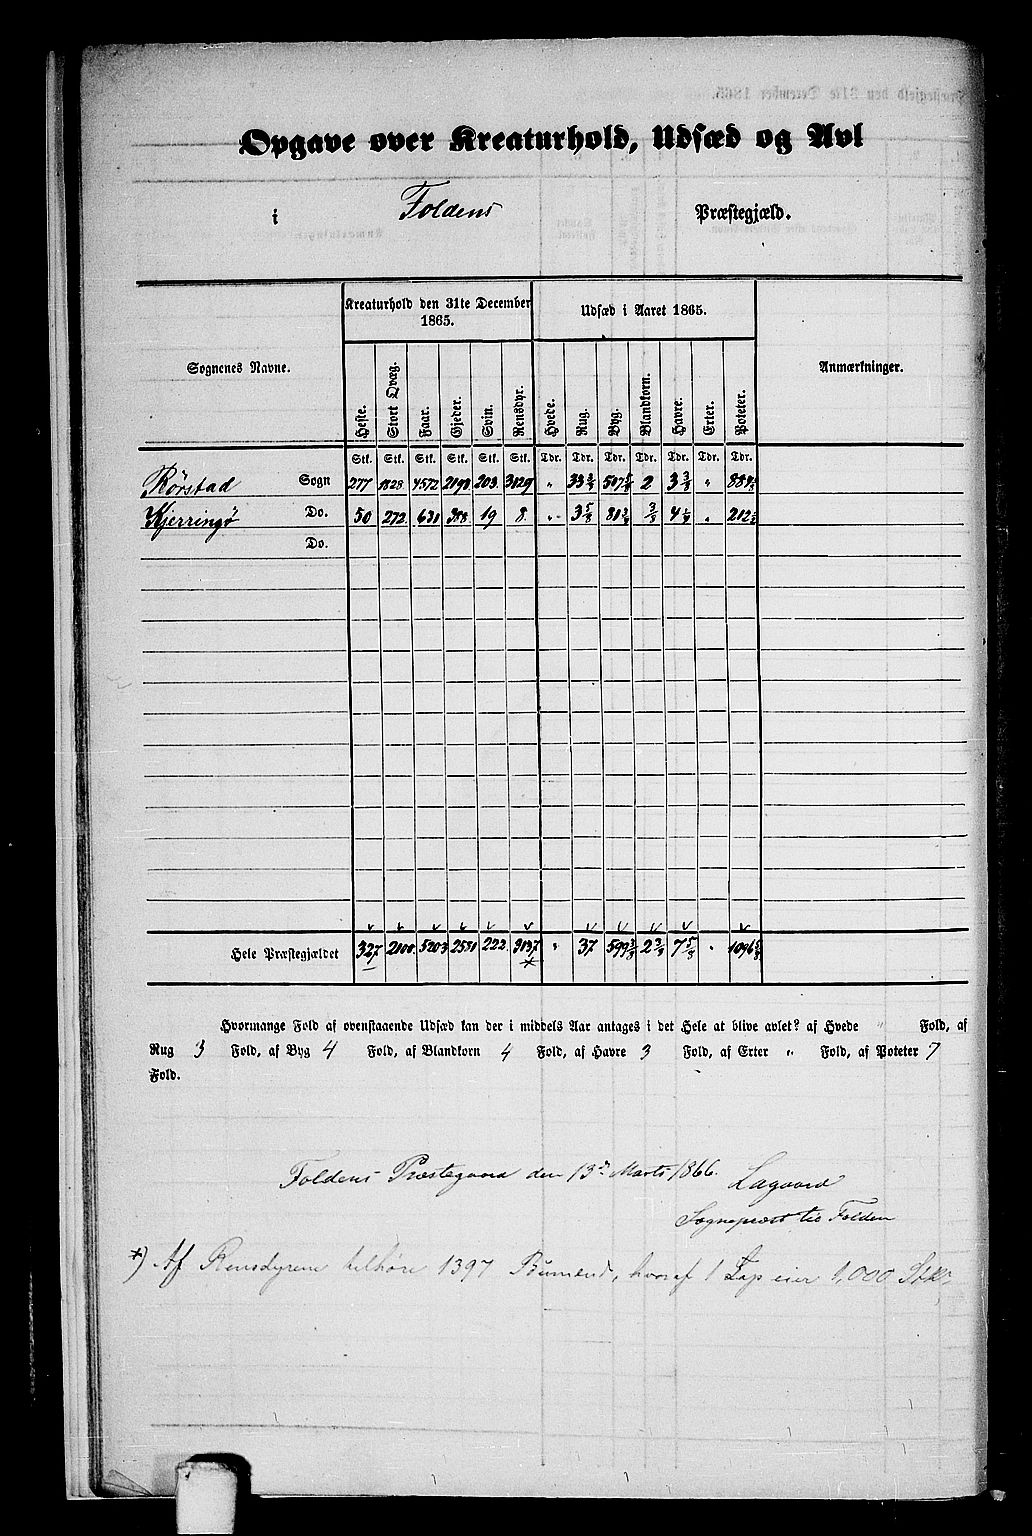 Opgave over Kreaturhold, Udsæd og Avl
i Foldens Præstegjæld.
Sognenes Navne. Kreaturhold den 31te December 1865. Udsæd i Aaret 1865. Anmærkninger.
Heste. Stort Qvæg. Faar. Gjeder. Svin. Rensdyr. Hvede. Rug. Byg. Blandkorn. Havre. Erter. Poteter.
Stk. Stk. Stk. Stk. Stk. Stk. Tdr. Tdr. Tdr. Tdr. Tdr. Tdr. Tdr.
Rørstad Sogn 277 1828 4572 2193 203 3129 " 33 3/8 517 5/8 2 3 3/8 " 884 1/8
Kjerringø Do. 50 272 631 388 19 8 " 3 5/8 81 3/4 3/8 4 1/4 " 212 1/2
Do.
Hele Præstegjældet 327 2100 5203 2581 222 3137 * " 37 599 3/8 2 3/8 7 5/8 " 1096 5/8
Hvormange Fold af ovenstaaende Udsæd kan der i middels Aar antages i det Hele at blive avlet? af Hvede " Fold, af
Rug 3 Fold, af Byg 4 Fold, af Blandkorn 4 Fold, af Havre 3 Fold, af Erter " Fold, af Poteter 7
Fold.
Foldens Præstegaard den 13de Marts 1866. Lagaard
Sognepræst til Folden
*) Af Rensdyrene tilhøre 1397 Bumænd, hvoraf 1 Lap eier 1,000 Stk.